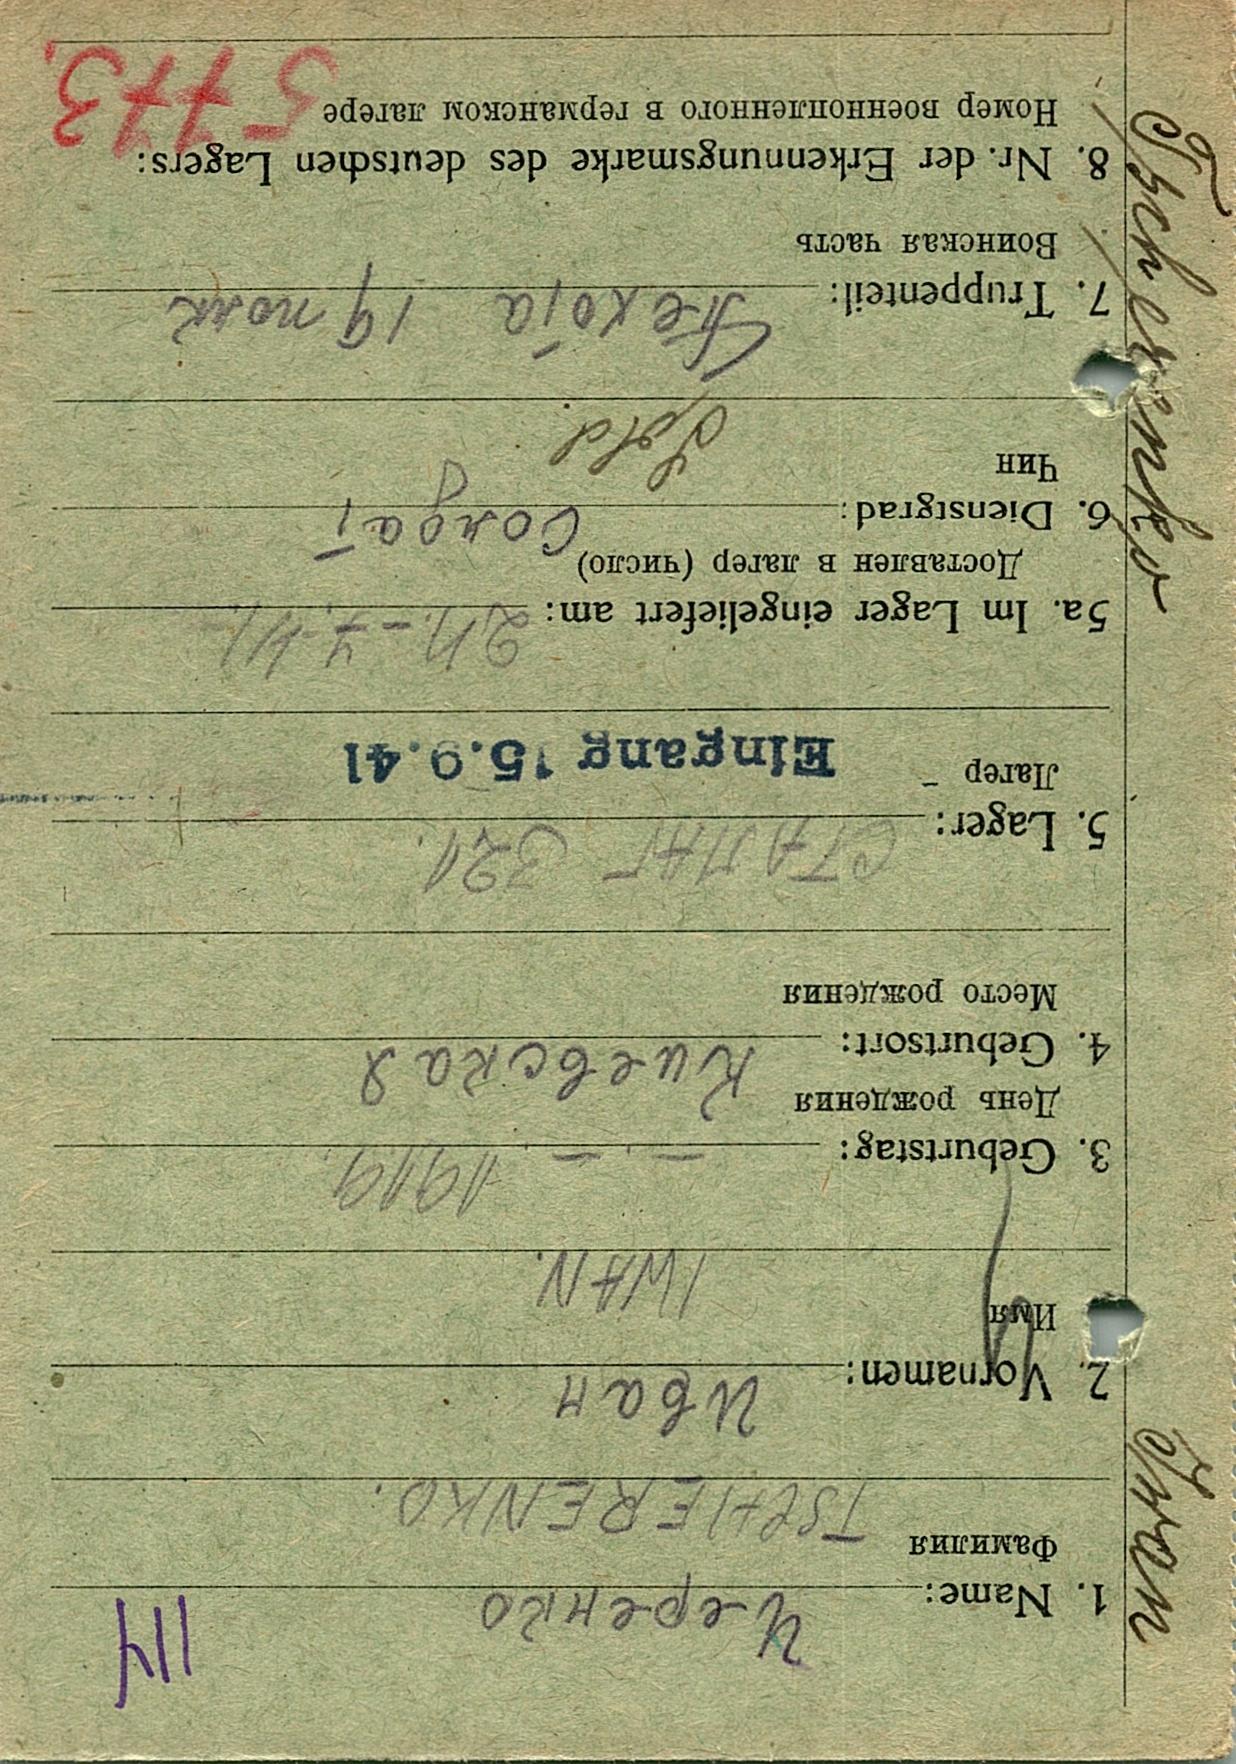 114
1. Name: Черенко
Фамилия
TSCHERENKO.
2. Vornamen: Иван
Имя
IWAN.
3. Geburtstag: —.—.1919.
День рождения
4. Geburtsort: Киевская
Место рождения
5. Lager: СТАЛАГ 321.
Лагер
Eingang 15.9.41
5a. Im Lager eingeliefert am: 21.-7-41.
Доставлен в лагер (число)
6. Dienstgrad: Солдат
Чин
Sold.
7. Truppenteil: Пехота 19 полк
Воинская часть
8. Nr. der Erkennungsmarke des deutschen Lagers:
Номер военнопленного в германском лагере
5773.
Tscherenko
Iwan